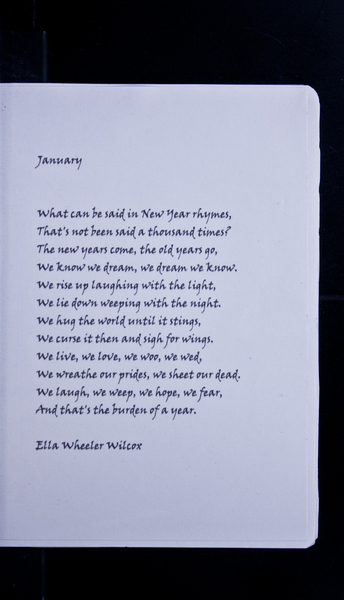 January
What can be said in New Year rhymes,
That's not been said a thousand times?
The new years come, the old years go,
We know we dream, we dream we know.
We rise up laughing with the light,
We lie down weeping with the night.
We hug the world until it stings,
We curse it then and sigh for wings.
We live, we love, we woo, we wed,
We wreathe our prides, we sheet our dead.
We laugh, we weep, we hope, we fear,
And that's the burden of a year.
Ella Wheeler Wilcox